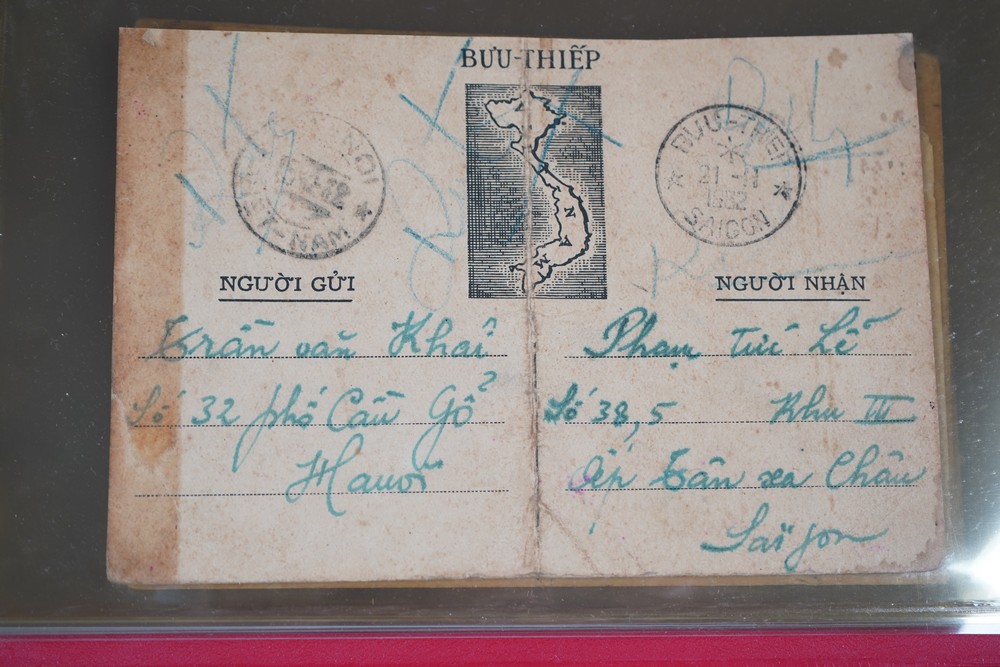 BƯU-THIẾP
NỘI
VIỆT-NAM
BƯU-THIẾP
21
SAIGON
VIỆT NAM
NGƯỜI GỬI
Trần văn Khải
Số 32 phố Cầu Gỗ
Hanoi
NGƯỜI NHẬN
Phạm Túc Lễ
Số 38,5 Khu III
Ấp Tân xa Châu
Saigon